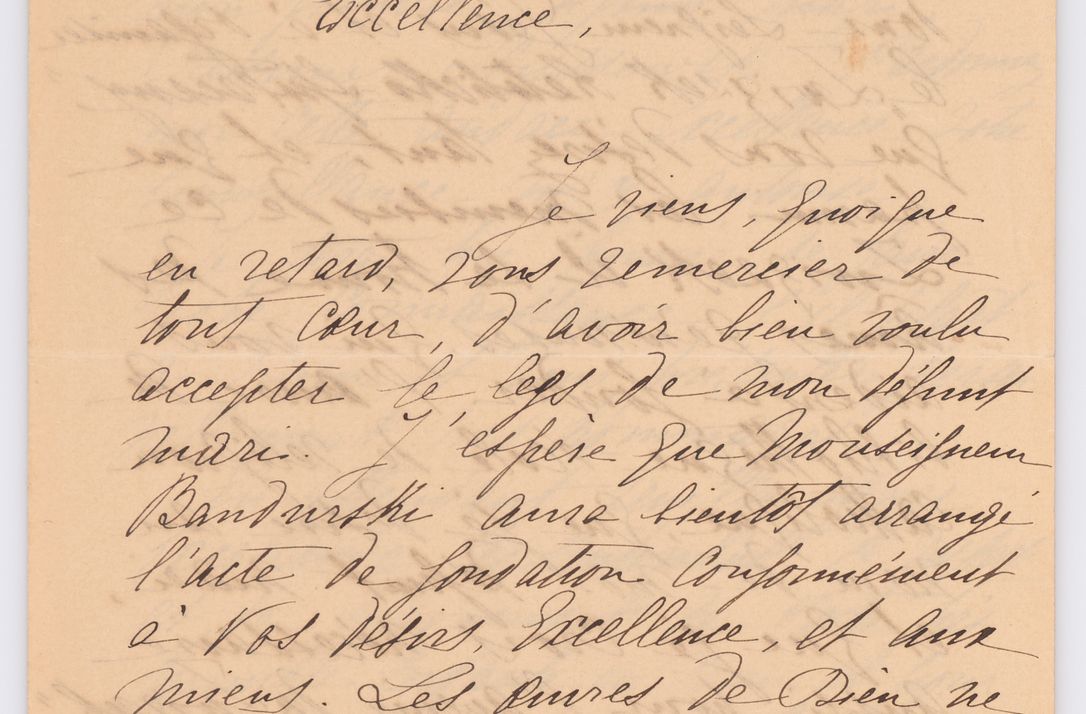 Excellence,
Je viens, quoique
en retard, vous remercier de
tout cœur, d'avoir bien voulu
accepter le legs de mon défunt
mari. J'espère que Monseigneur
Bandurski aura bientôt arrangé
l'acte de fondation conformément
à Vos désirs, Excellence, et aux
miens. Les œuvres de Dieu ne